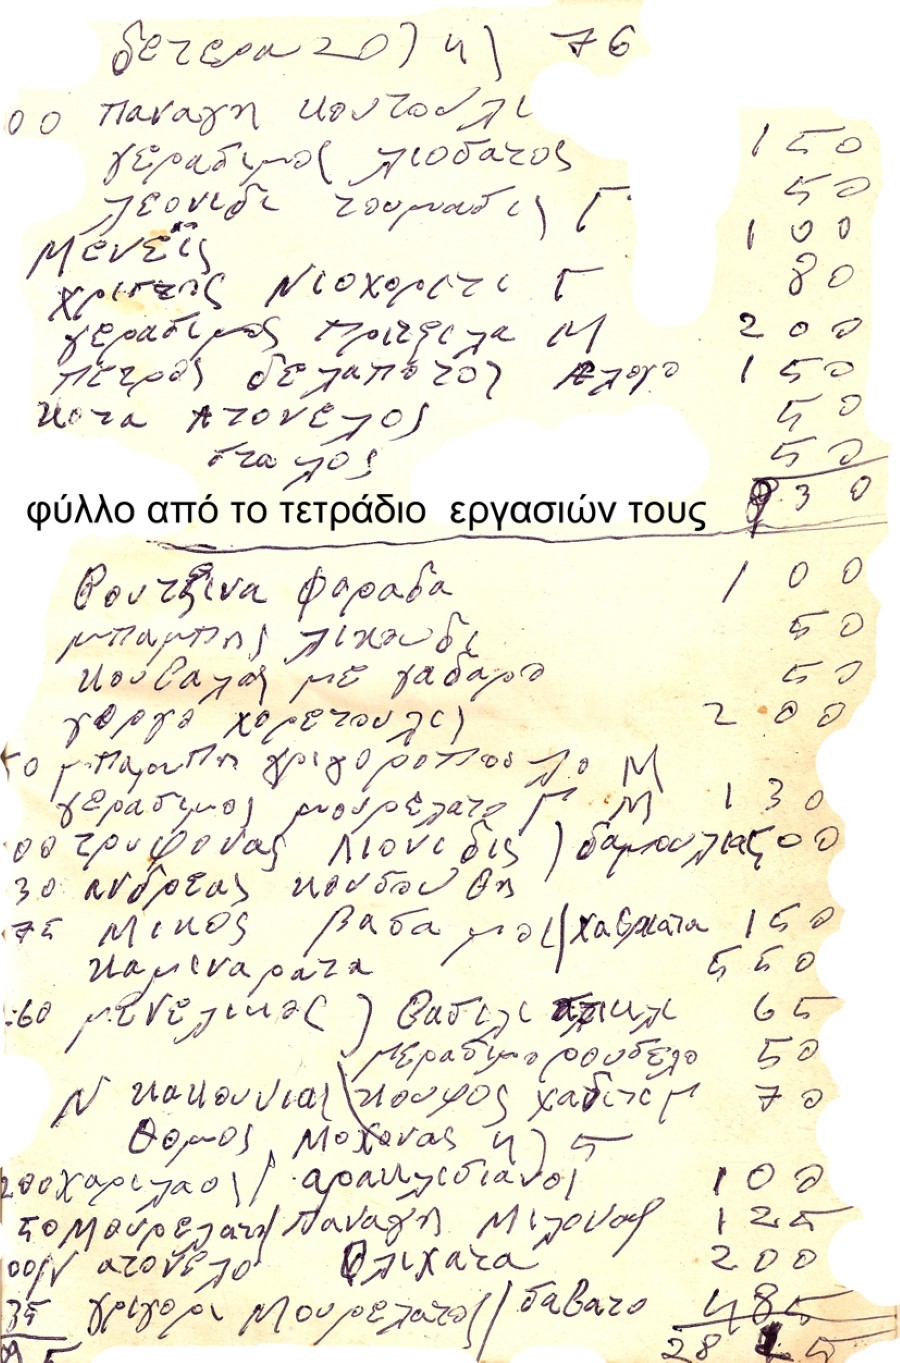 δετερα 20) 4) 76
00 παναγη κουτουλι
γεραδιμος λιοδατος 150
λεονιδι τουμαδις) Γ 50
Μενεϊς 100
χριστος Νιοχοριτι Γ 80
γεραδιμος πριτζιλα Μ 200
πετρος δελαπότος Αλογο 150
κοτα ατονελος 50
σταλος 50
930
φύλλο από το τετράδιο εργασιών τους
βουτζινα φαραδα 100
μπαμπης λικουδι 50
κουβαλας με γαδαρο 50
γοργο χορετουλι) 200
50 μπαμπη γριγοροπουλο Μ
γερασιμος μουρελατο Γ Μ 130
00 τρυφονας Λιονιδις) δαμουλιας 500
30 ανδρεας κουδουθη
75 Μικος βαδα μος/χαβριατα 150
καμιναρατα 550
60 μενελικος) βασιλι 65
μεραδιμο ρουδελο 50
Ν κακουνιας κουφος χαδιτι Γ 70
θομος Μοχονας 4) 5
200 χαριλαος/ αρακλιδιανοι 100
50 Μουρελατη/παναγη Μιλονας 125
00/Ν ατονελο Θλιχατα 200
35 γριγορι Μουρελατος/ δαβατο 485
28 5